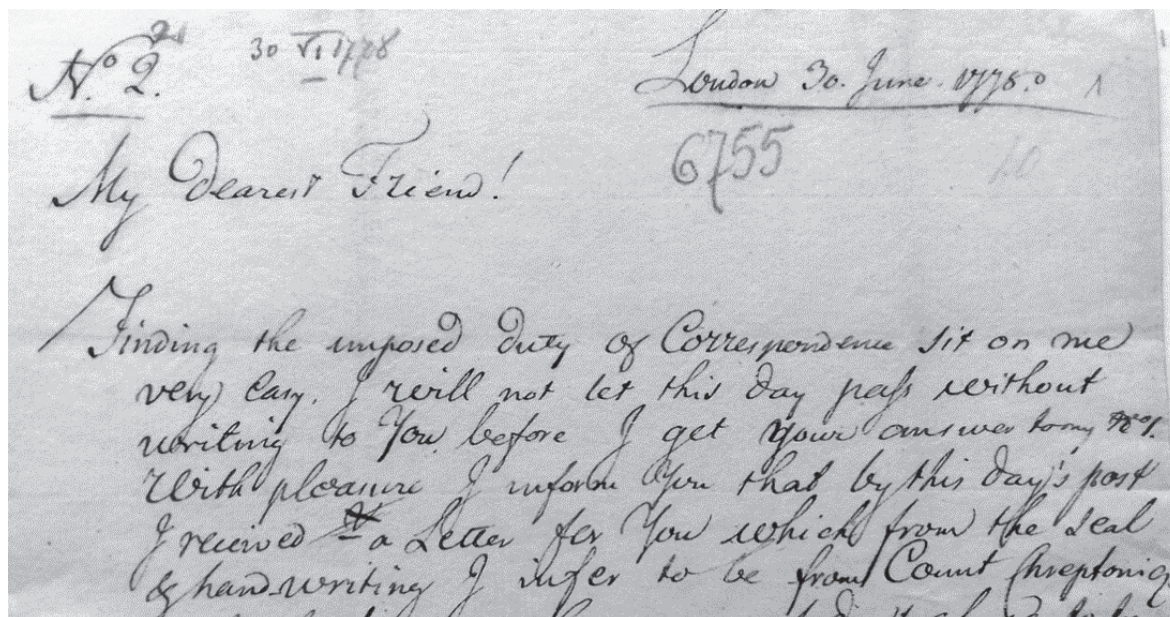 No. 2.
30 VI 1778
London 30. June. 1778.
6755
My Dearest Friend!
Finding the imposed duty of Correspondence sit on me
very easy. I will not let this day pass without
writing to You before I get your answer to my No 1.
With pleasure I inform You that by this day's post
I reciewed a Letter for You which from the Seal
& hand-writing I infer to be from Count Chreptonig